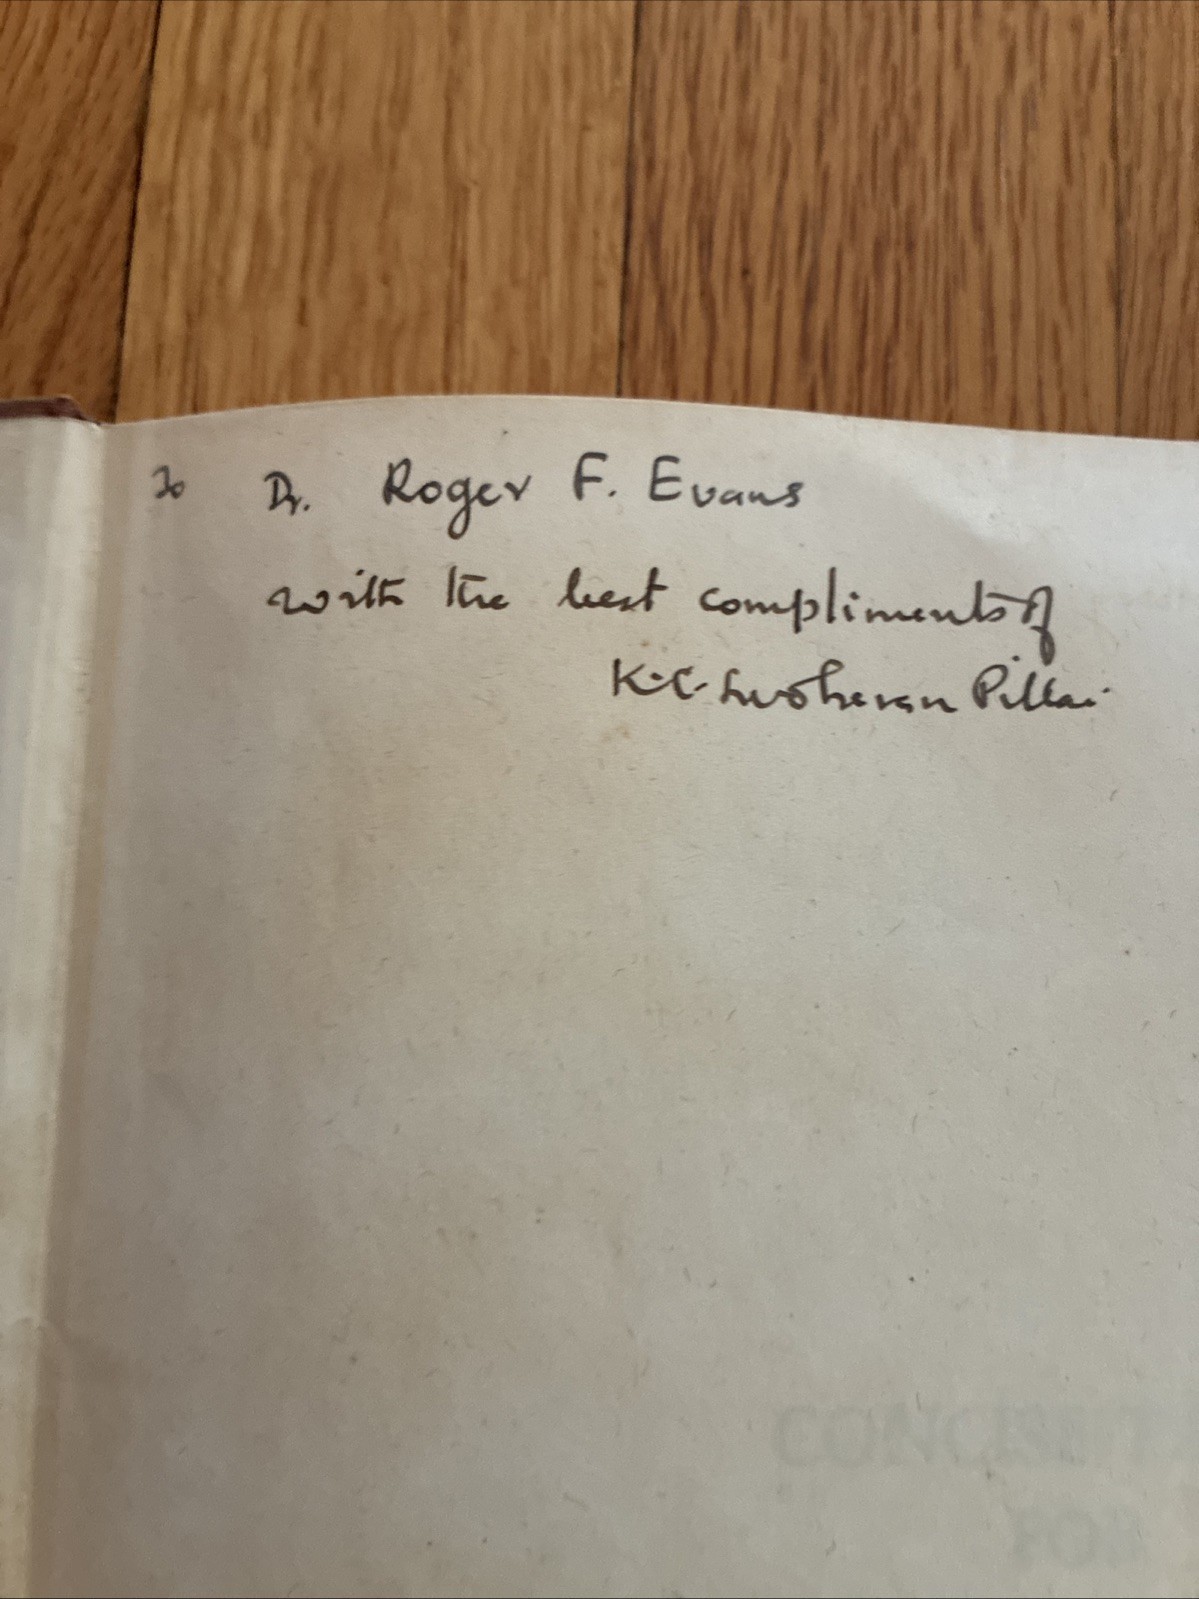 To Dr. Roger F. Evans
with the best compliments of
K.C. Pillai
CONCISE
FOR